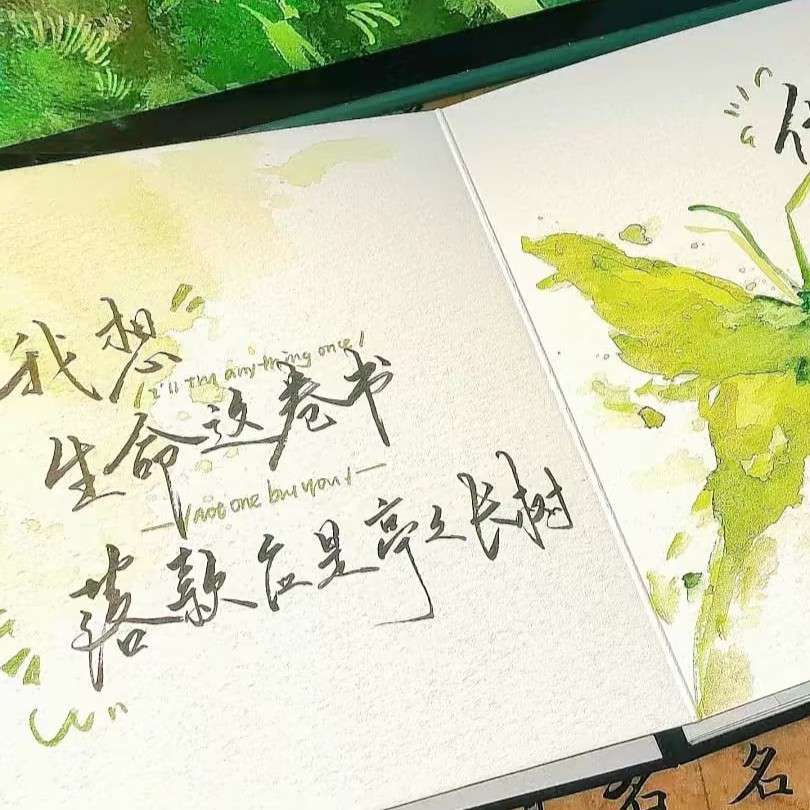 我想
I'll try anything once/
生命这卷书
—/not one but you/—
落款应是亭久长树
名
名